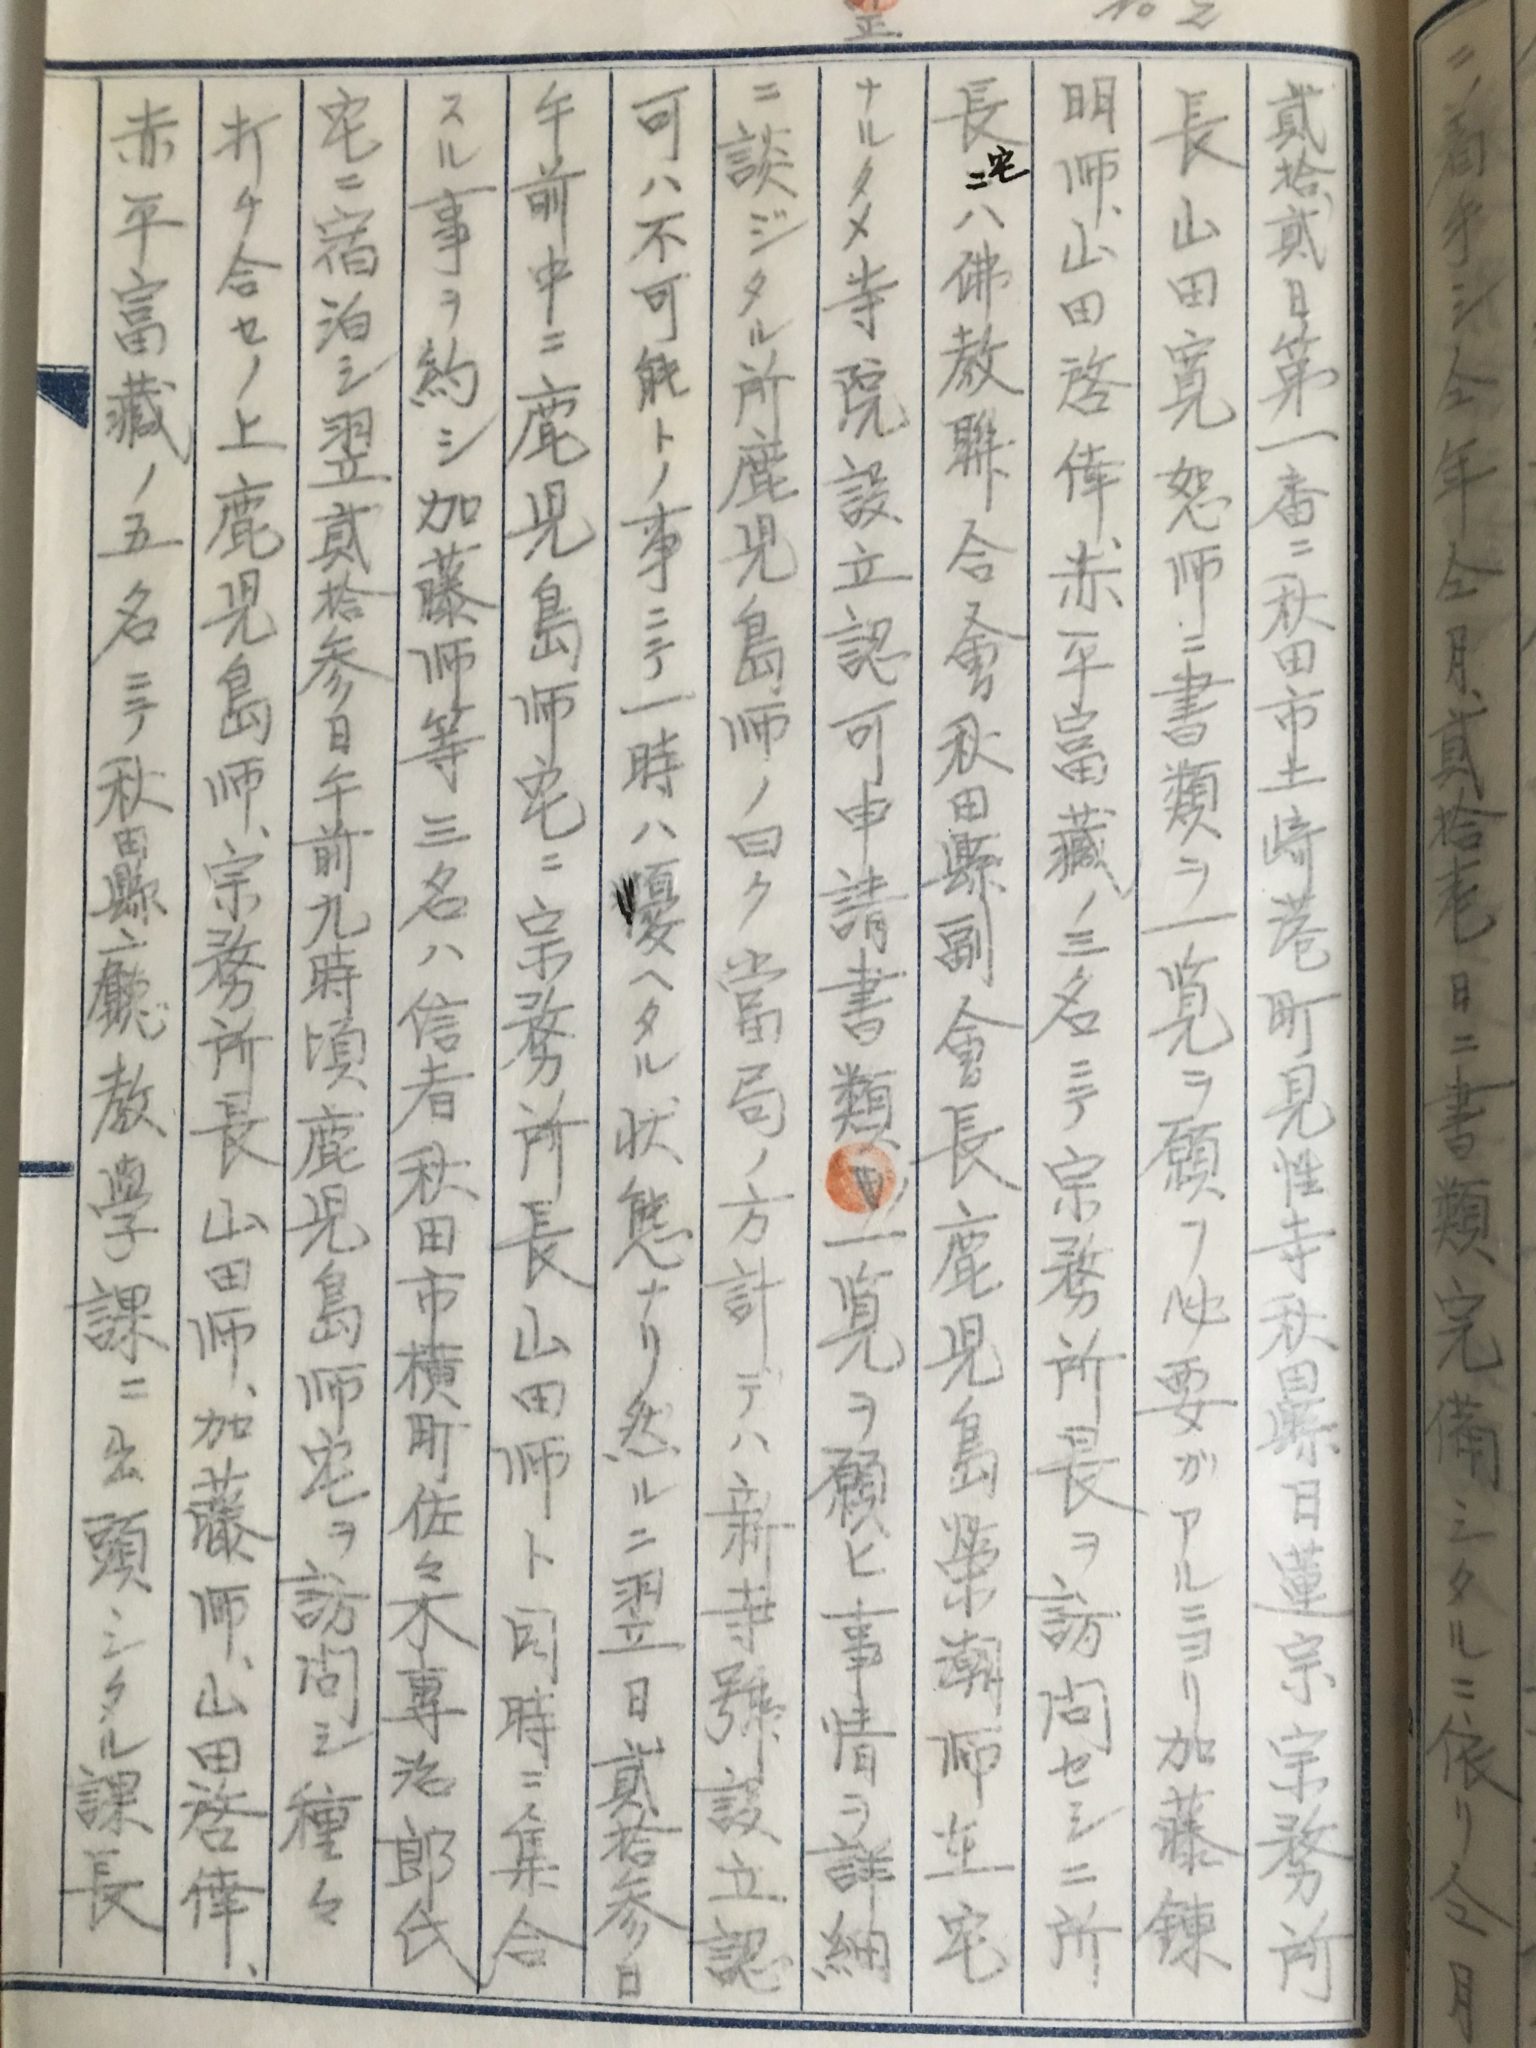 ニ着手シ仝年仝月、貳拾壱日ニ書類完備シタルニ依リ仝月
貳拾貳日第一番ニ秋田市土崎港町見性寺秋田縣日蓮宗宗務所
長山田寛恕师ニ書類ヲ一覧ヲ願フ必要ガアルニヨリ加藤錬
明师、山田啓偉、赤平富藏ノ三名ニテ宗務所長ヲ訪問セシニ所
長宅ニハ佛教聯合會秋田縣副會長鹿児島榮潮师在宅
ナルタメ寺院設立認可申請書類ノ一覧ヲ願ヒ事情ヲ詳細
ニ談ジタル所鹿児島师ノ曰ク當局ノ方計デハ新寺號設立認
可ハ不可能トノ事ニテ一時ハ憂ヘタル状態ナリ然ルニ翌日貳拾参日
午前中ニ鹿児島师宅ニ宗務所長山田师ト同時ニ集合
スル事ヲ約シ加藤师等三名ハ信者秋田市横町佐々木專治郎氏
宅ニ宿泊シ翌貳拾参日午前九時頃鹿児島师宅ヲ訪問シ種々
打チ合セノ上鹿児島师、宗務所長山田师、加藤师、山田啓偉、
赤平富藏ノ五名ニテ秋田縣廳教學課ニ出頭シタル課長